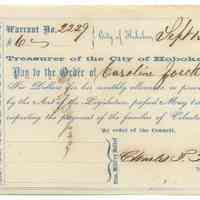 Warrant No. 2229 City of Hoboken, Sept 1
$ 6
Treasurer of the City of Hoboke
Pay to the Order of Caroline
Six Dollars for her monthly allowance, as p
by the Act of the Legislature, passed May 1
respecting the payment of the families of Volunte
By order of the Council,
Charles